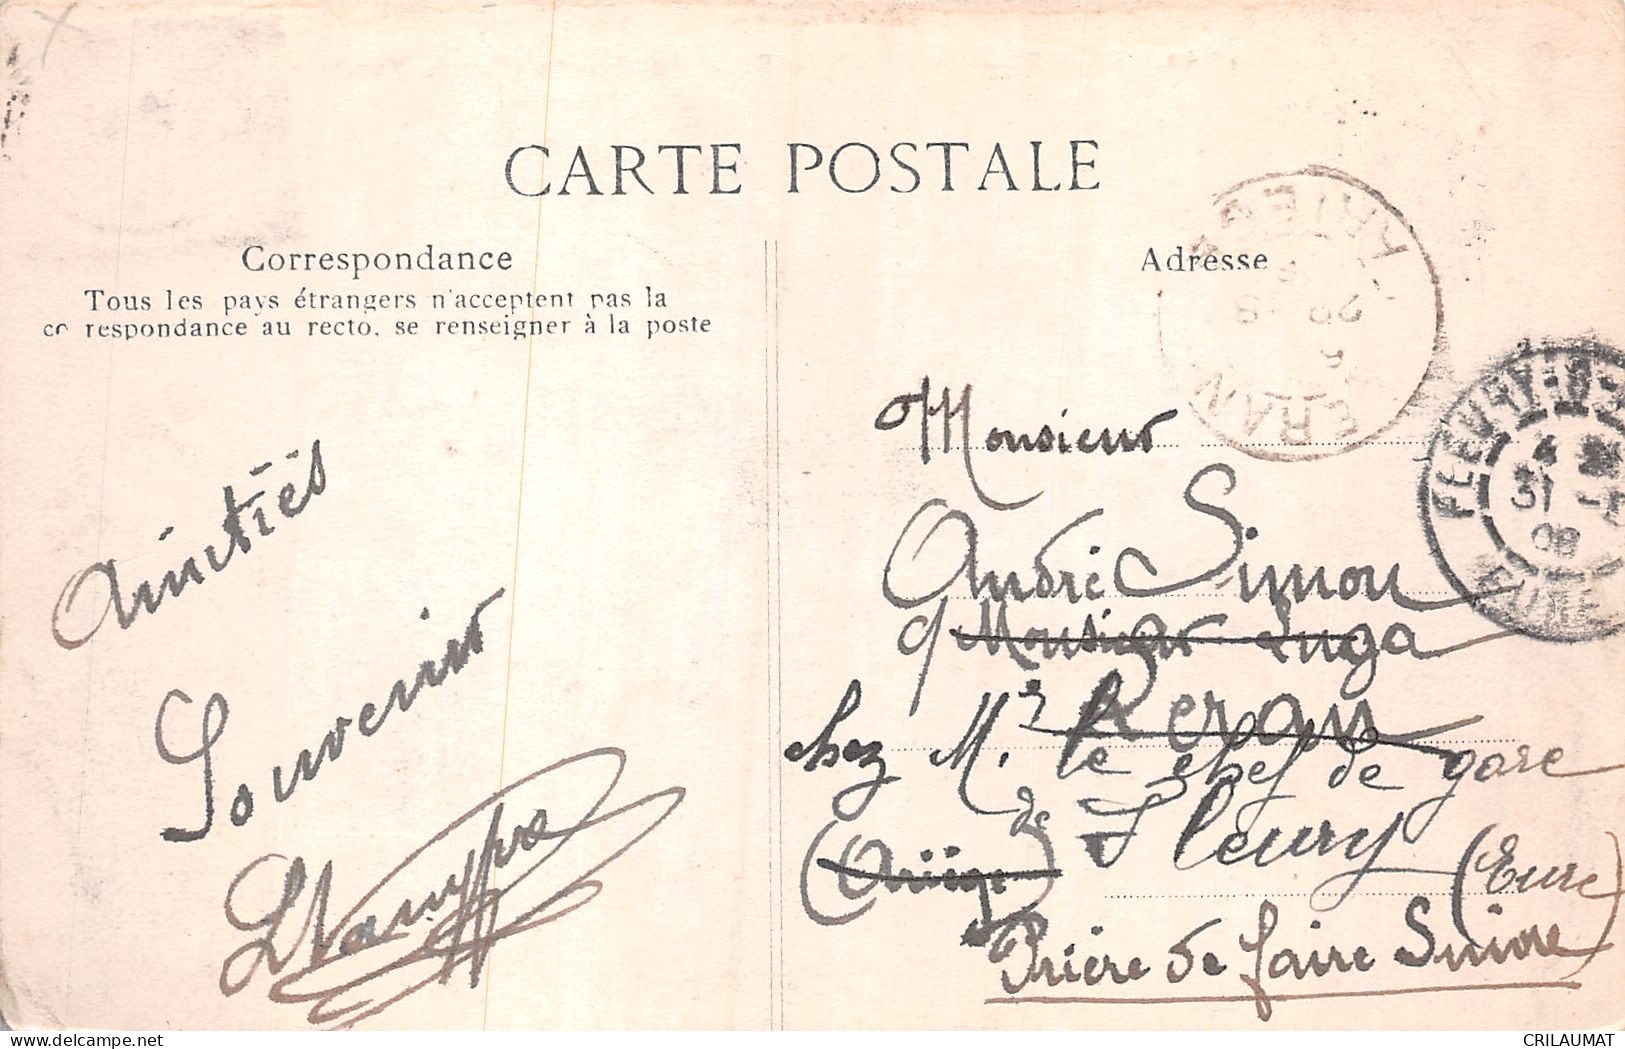 CARTE POSTALE
Correspondance
Tous les pays étrangers n'acceptent pas la
co respondance au recto, se renseigner à la poste
Amitiés
Souvenir
Adresse
Monsieur
André Simon
Monsieur Luga
Rerau
chez Mr. le chef de gare
de Fleury (Eure)
(Ariège)
Prière de faire Suivre
31
08
EURE
delcampe.net
CRILAUMAT